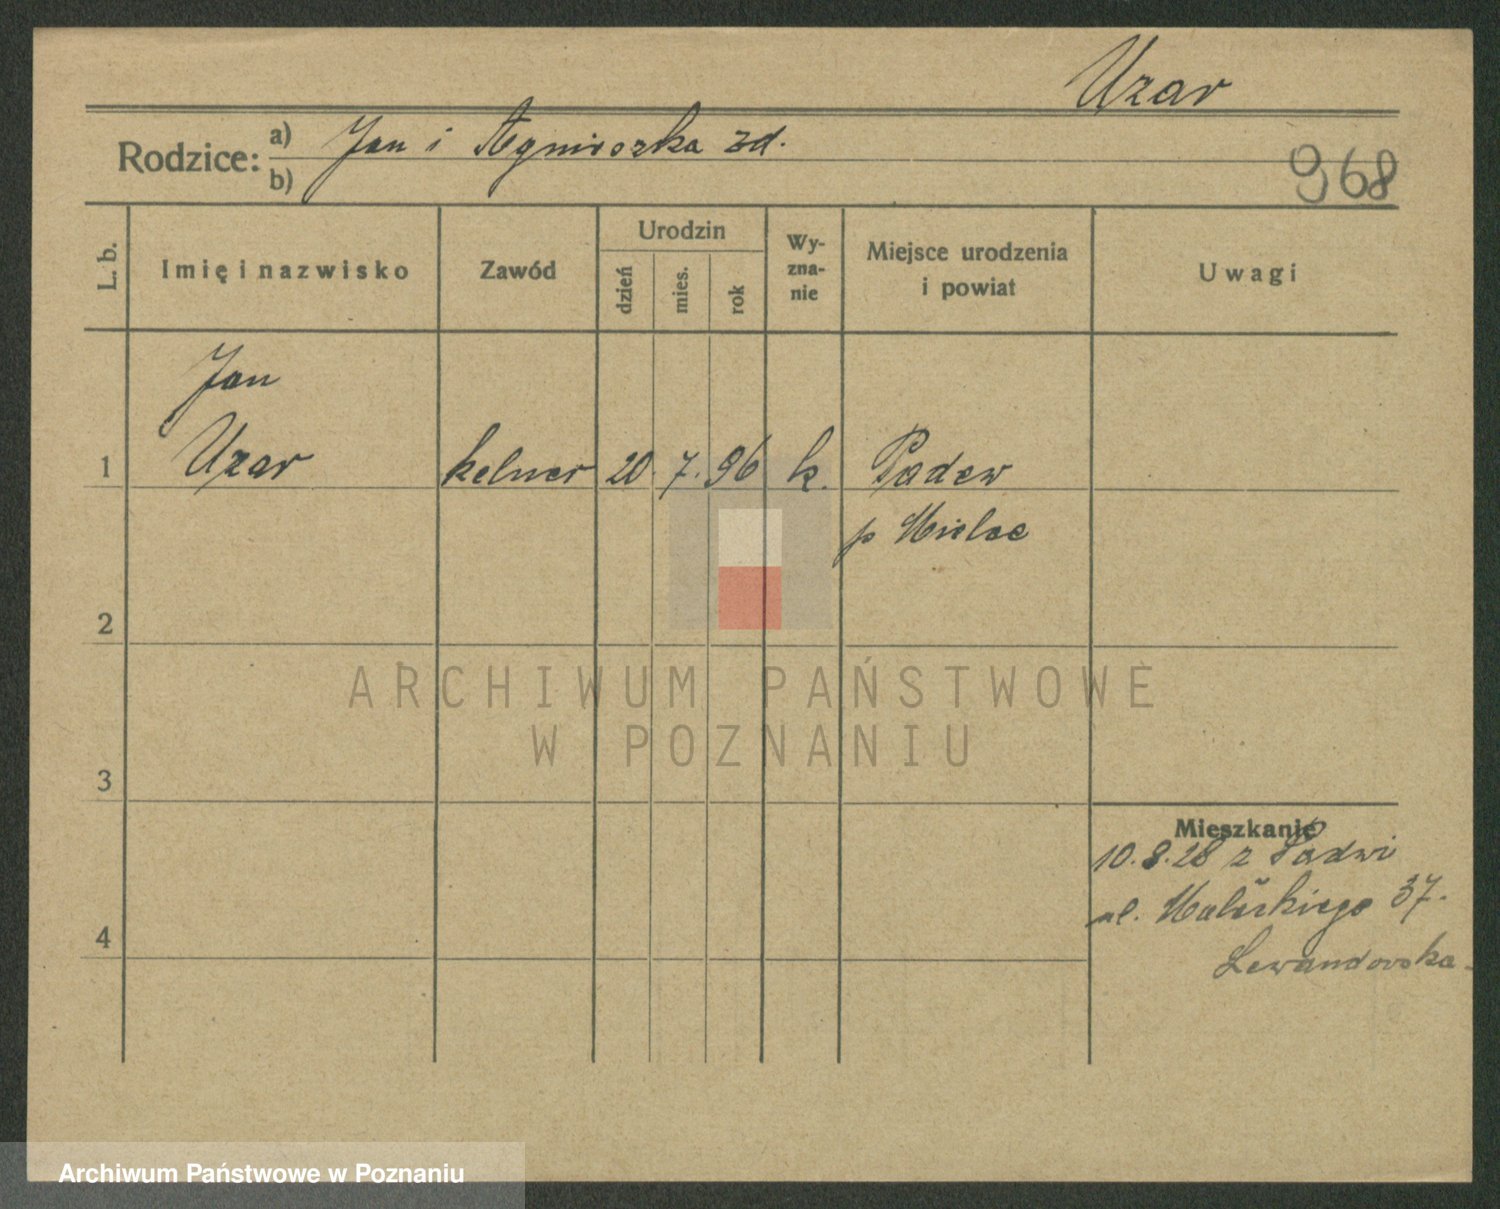 Uzar
Rodzice: a) Jan i Agnieszka zd.
b)
968
L. b.
Imię i nazwisko
Zawód
Urodzin
dzień
mies.
rok
Wy-
zna-
nie
Miejsce urodzenia
i powiat
Uwagi
Jan
1 Uzar kelner 20. 7. 96 k. Padew
p Mielec
2
ARCHIWUM PAŃSTWOWE
W POZNANIU
3
Mieszkanie
10.8.28 z Padwi
4 ul. 37.
Lewandowska
Archiwum Państwowe w Poznaniu